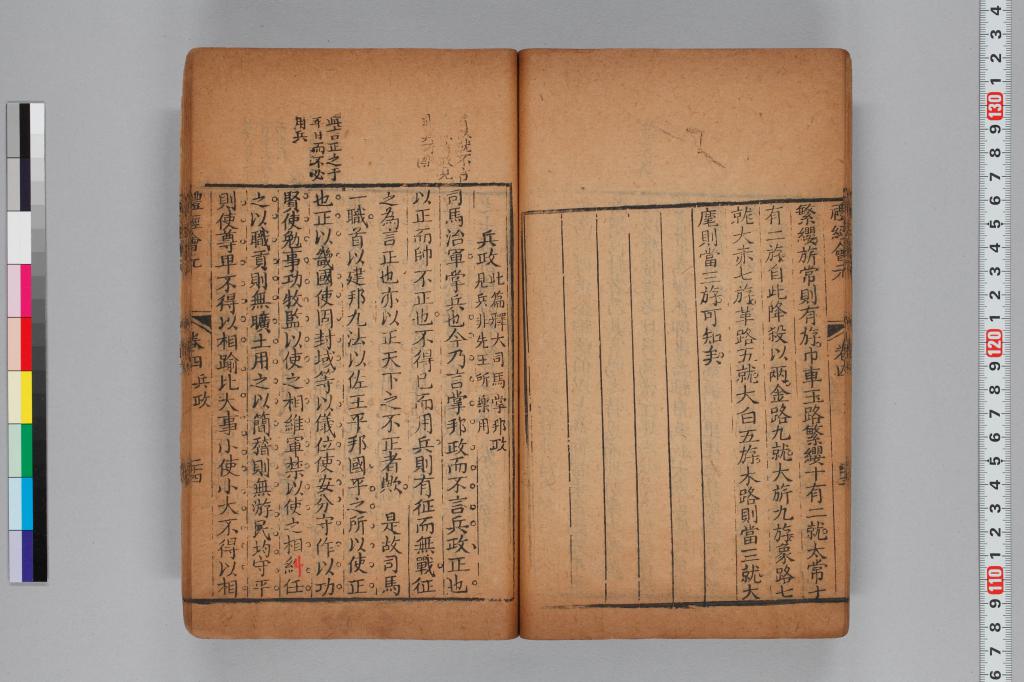 禮經會元
卷四
繁纓旂常則有旒巾車玉路繁纓十有二就太常十
有二旒自此降殺以兩金路九就大旂九旒象路七
就大赤七旒革路五就大白五旒木路則當三就大
麾則當三旒可知矣
兵政
此篇釋大司馬掌邦政
見兵非先王所樂用
司馬治軍掌兵也今乃言掌邦政而不言兵政正也
以正而帥不正也不得已而用兵則有征而無戰征
之為言正也亦以正天下之不正者歟 是故司馬
一職首以建邦九法以佐王平邦國平之所以使正
也正以畿國使固封域等以儀位使安分守作以功
賢使勉事功牧監以使之相維軍禁以使之相糾任
之以職貢則無曠土用之以簡稽則無游民均守平
則使尊卑不得以相踰比大事小使小大不得以相
平日而不必
用兵
禮經會元
卷四
兵政
二十四
110
120
130